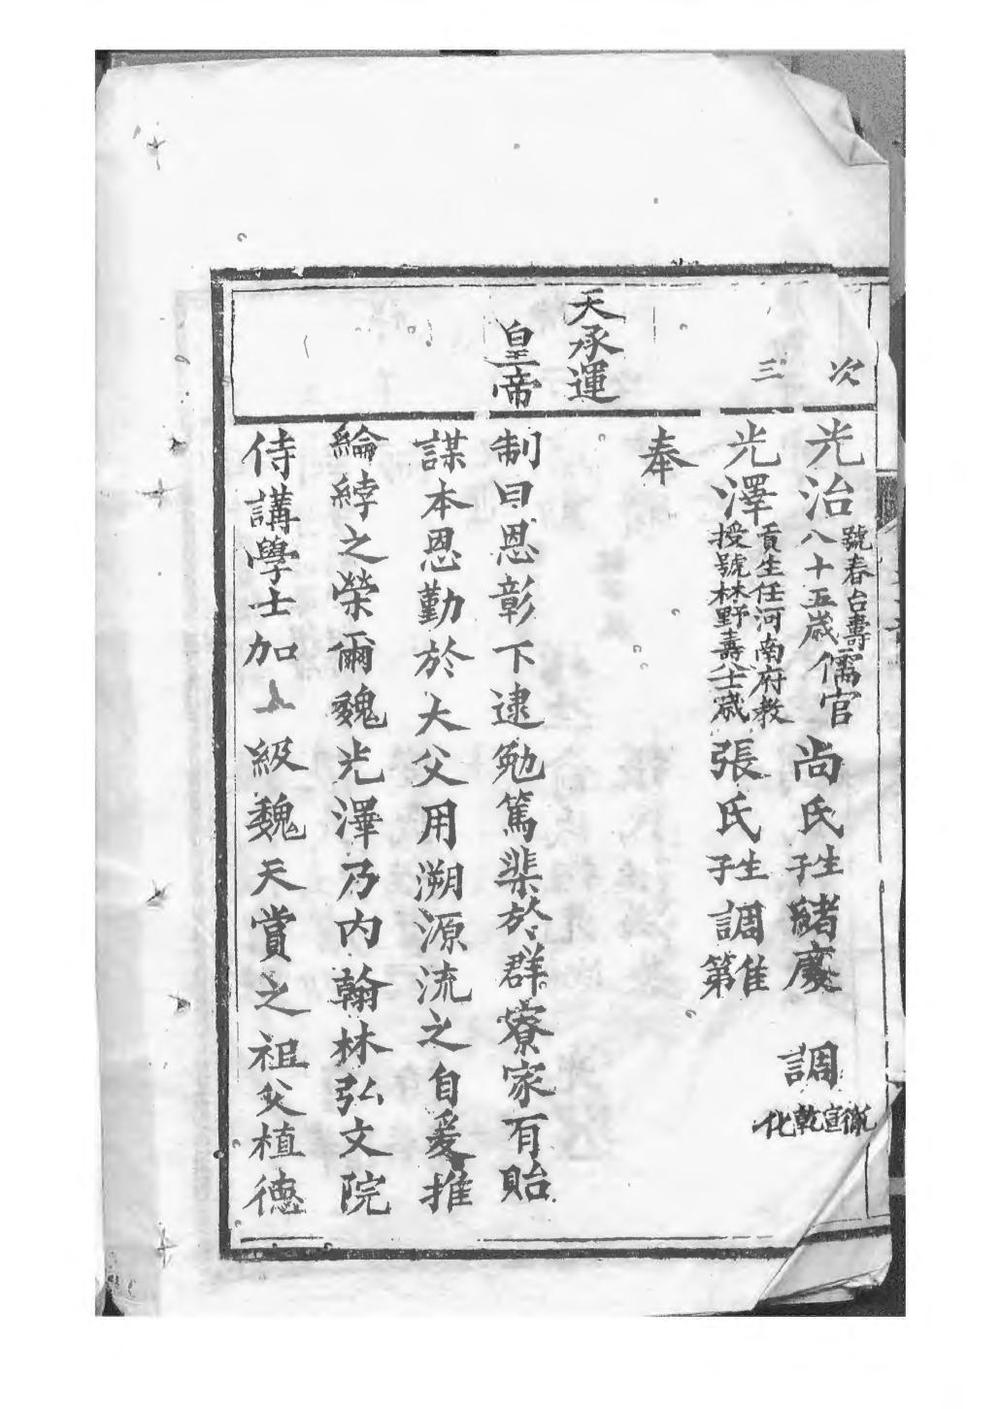 次 光治 號春台壽八十五歲 儒官 尚氏 生子 緒 調
宣乾化
三 光澤 貢生任河南府教授號林野壽八十歲 張氏 生子 調
奉
天承運
皇帝
制曰恩彰下逮勉篤棐於群寮家有貽
謀本恩勤於大父用溯源流之自爰推
綸綍之榮爾魏光澤乃內翰林弘文院
侍講學士加一級魏天賞之祖父植德